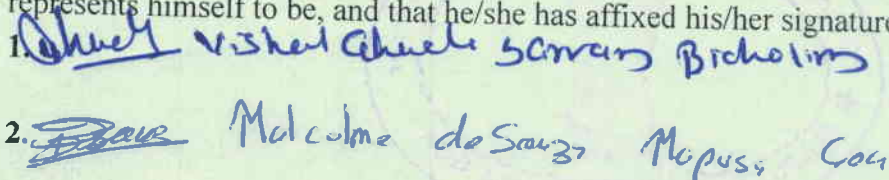 represents himself to be, and that he/she has affixed his/her signature
1. Vishal Sarvan Bicholim
2. Malcolme de Souza Mapusa Goa